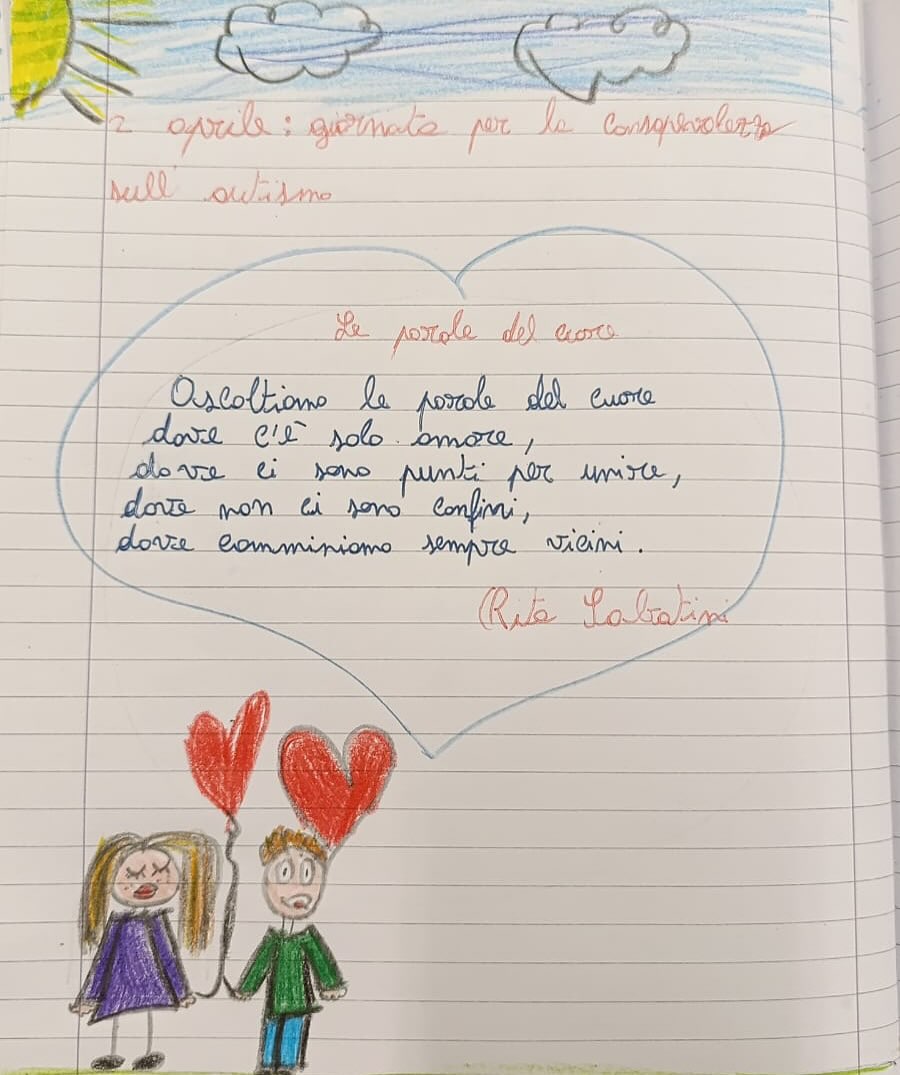 2 aprile: giornata per la consapevolezza
sull'autismo
Le parole del cuore
Ascoltiamo le parole del cuore
dove c'è solo amore,
dove ci sono punti per unire,
dove non ci sono confini,
dove camminiamo sempre vicini.
Rita Sabatini